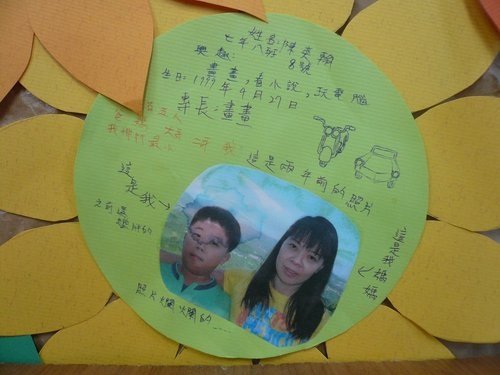 姓名:陳奕翰
七年八班 8號
興趣:
畫畫,看小說,玩電腦
生日:1999年4月27日
專長:畫畫
五人
我
這是兩年前的照片
這是我→
之前還
這是我媽媽
照片爛爛的……